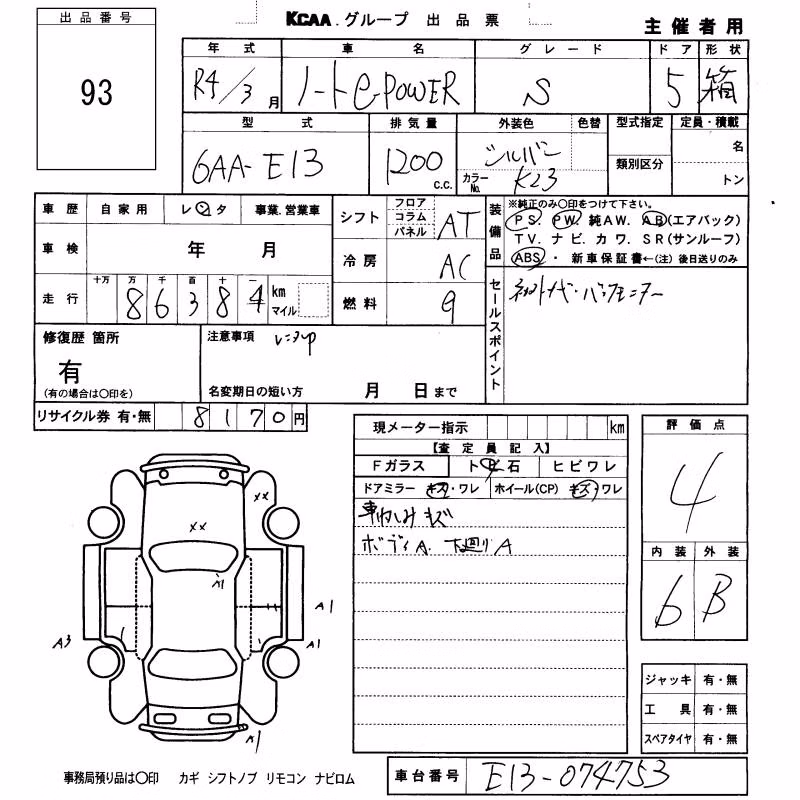 出品番号
93
KCAA.グループ 出品票
主催者用
年式 車名 グレード ドア 形状
R4/3月 ノートe-POWER S 5 箱
型式 排気量 外装色 色替 型式指定 定員・積載
6AA-E13 1200 c.c. シルバー
カラーNo. K23
類別区分
名
トン
車歴 自家用 レンタ 事業.営業車
車検 年 月
走行 十万 万 千 百 十 一
8 6 3 8 4 km マイル
シフト フロア コラム パネル AT
冷房 AC
燃料 9
装備品
※純正のみ〇印をつけて下さい。
PS. PW. 純AW. AB(エアバック)
TV. ナビ. カワ. SR(サンルーフ)
ABS ・ 新車保証書←(注) 後日送りのみ
セールスポイント
修復歴 箇所
有
(有の場合は〇印を)
注意事項
名変期日の短い方 月 日まで
リサイクル券 有・無 8 1 7 0 円
現メーター指示 km
【査定員記入】
Fガラス トビ石 ヒビワレ
ドアミラー キズ・ワレ ホイール(CP) キズ・ワレ
ボディA. 下廻りA
評価点
4
内装 外装
6 B
XX
XX
A1
A1
A3
A1
A1
ジャッキ 有・無
工具 有・無
スペアタイヤ 有・無
事務局預り品は〇印 カギ シフトノブ リモコン ナビロム
車台番号 E13-074753